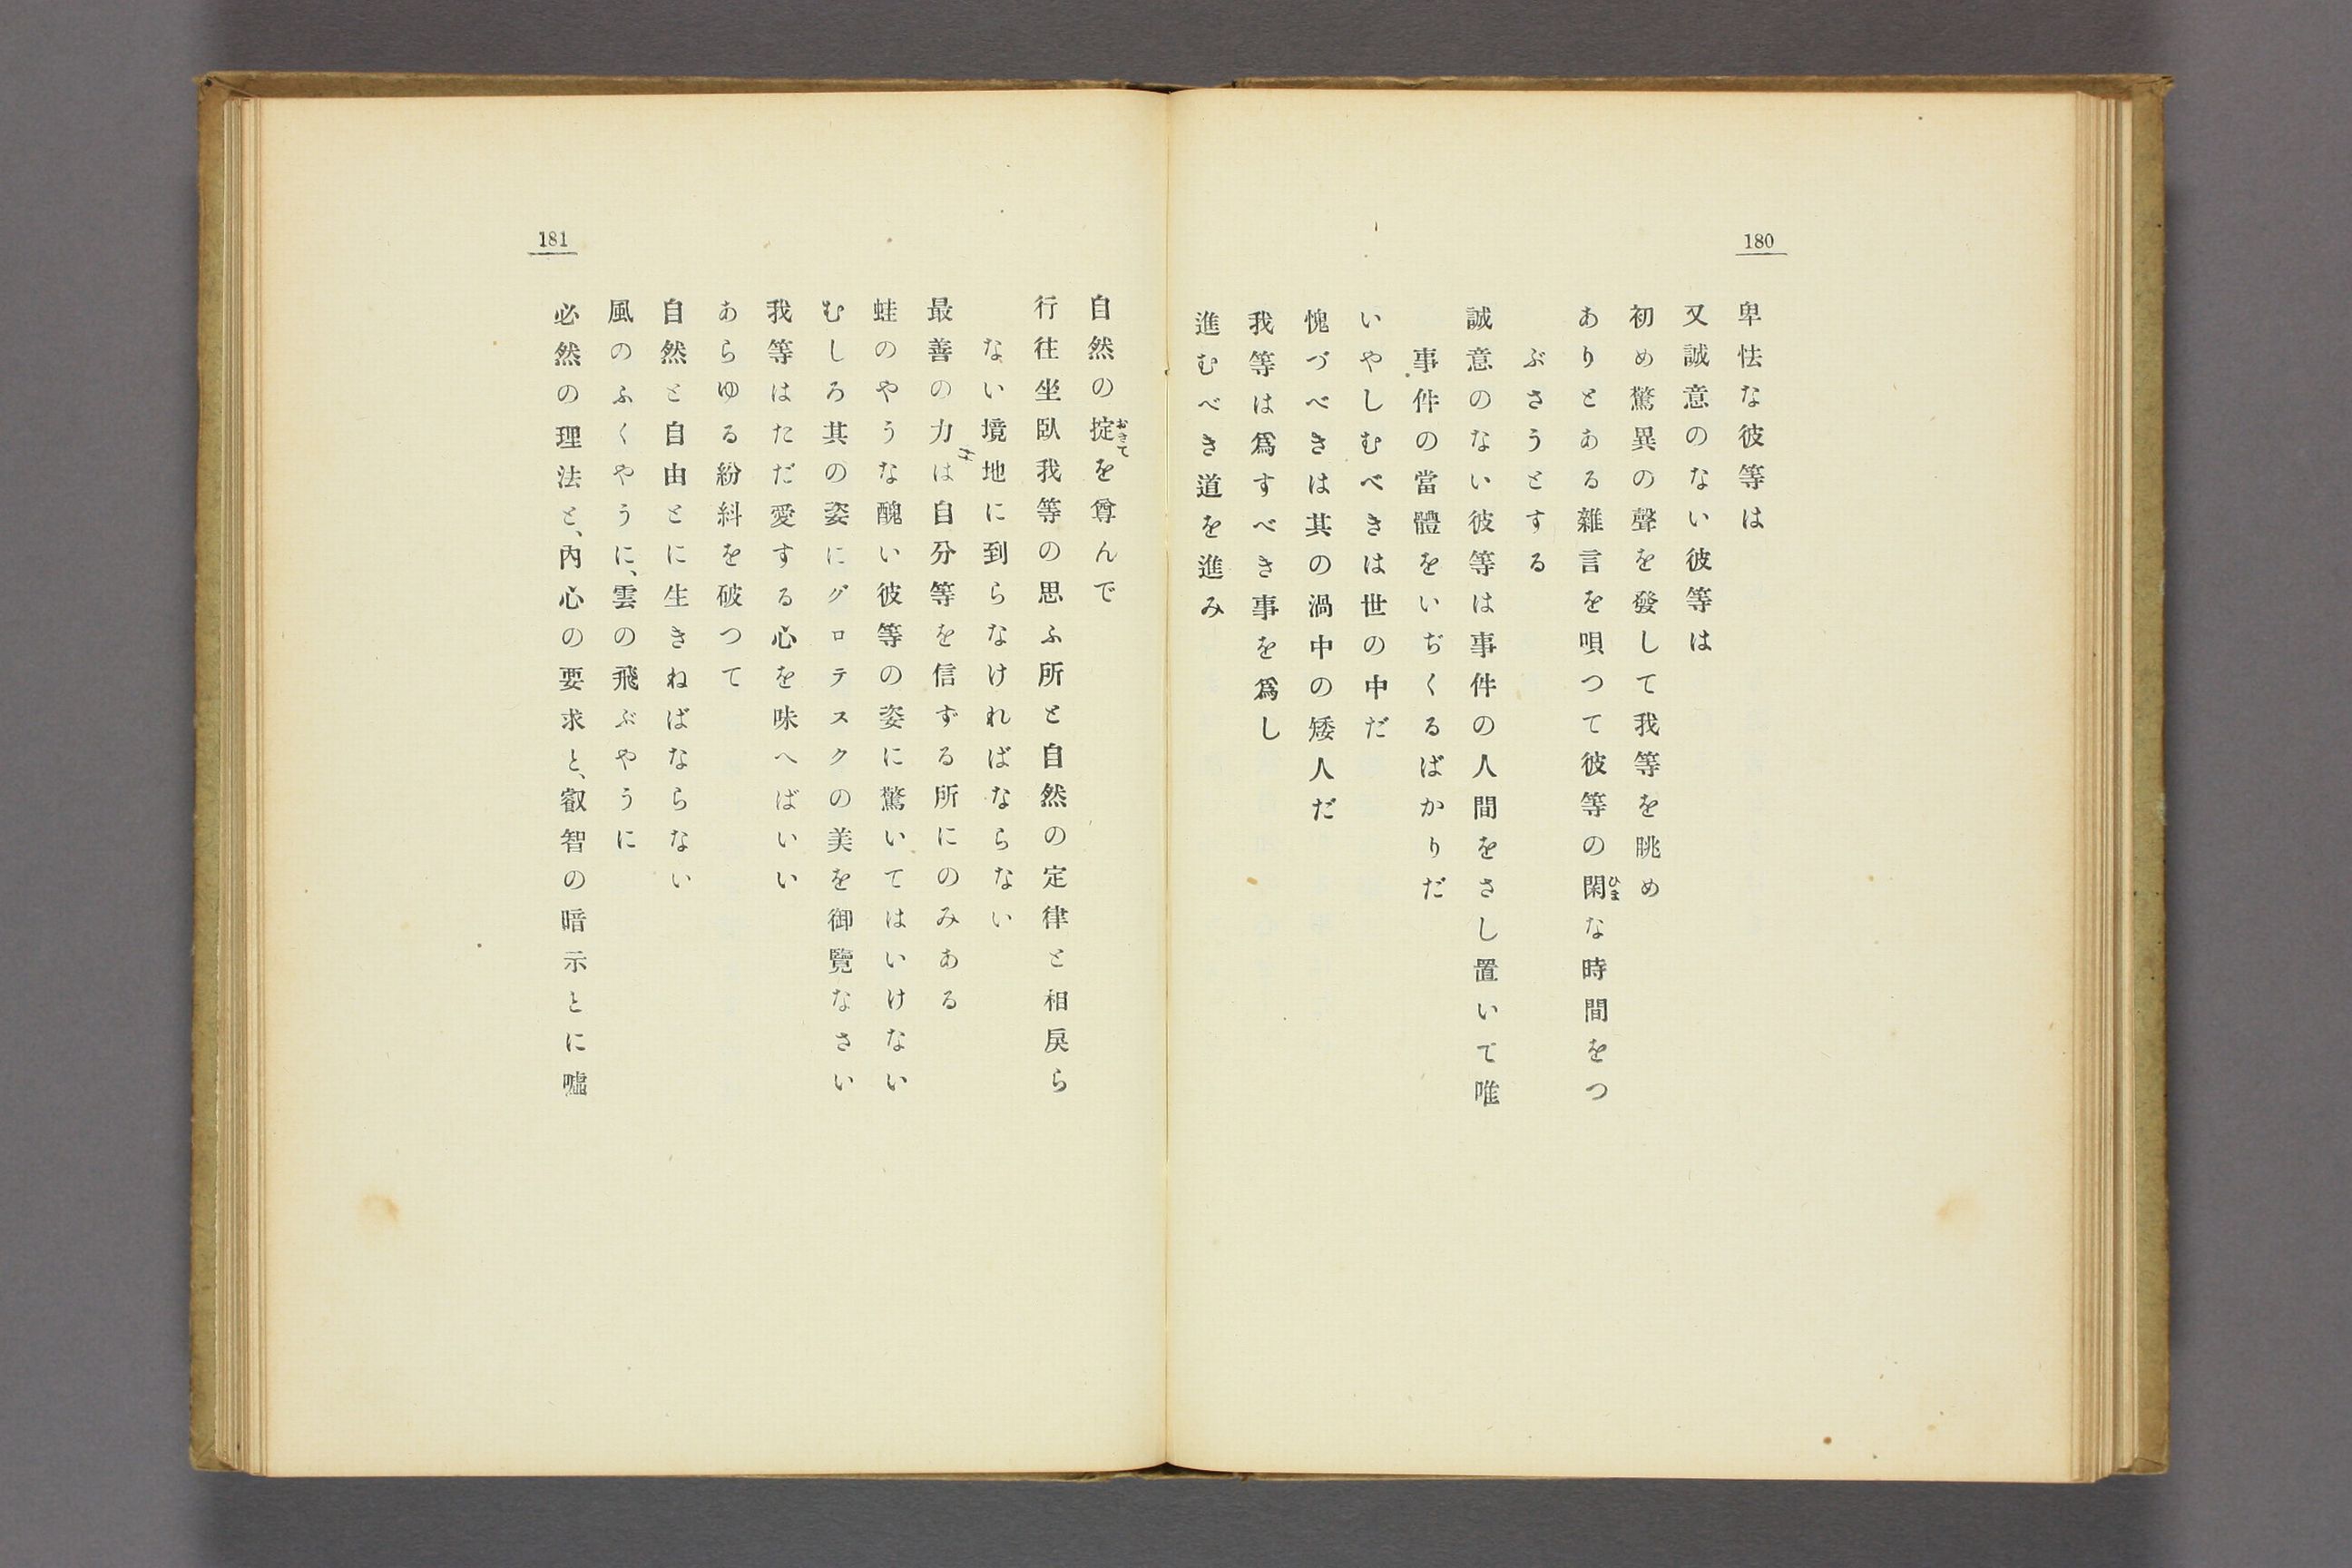 180
卑怯な彼等は
又誠意のない彼等は
初め驚異の聲を發して我等を眺め
ありとある雜言を唄つて彼等の閑な時間をつ
ひま
ぶさうとする
誠意のない彼等は事件の人間をさし置いて唯
事件の當體をいぢくるばかりだ
いやしむべきは世の中だ
愧づべきは其の渦中の矮人だ
我等は爲すべき事を爲し
進むべき道を進み
181
自然の掟を尊んで
おきて
行往坐臥我等の思ふ所と自然の定律と相戾ら
ない境地に到らなければならない
最善の力は自分等を信ずる所にのみある
蛙のやうな醜い彼等の姿に驚いてはいけない
むしろ其の姿にグロテスクの美を御覽なさい
我等はただ愛する心を味へばいい
あらゆる紛糾を破つて
自然と自由とに生きねばならない
風のふくやうに、雲の飛ぶやうに
必然の理法と、內心の要求と、叡智の暗示とに噓